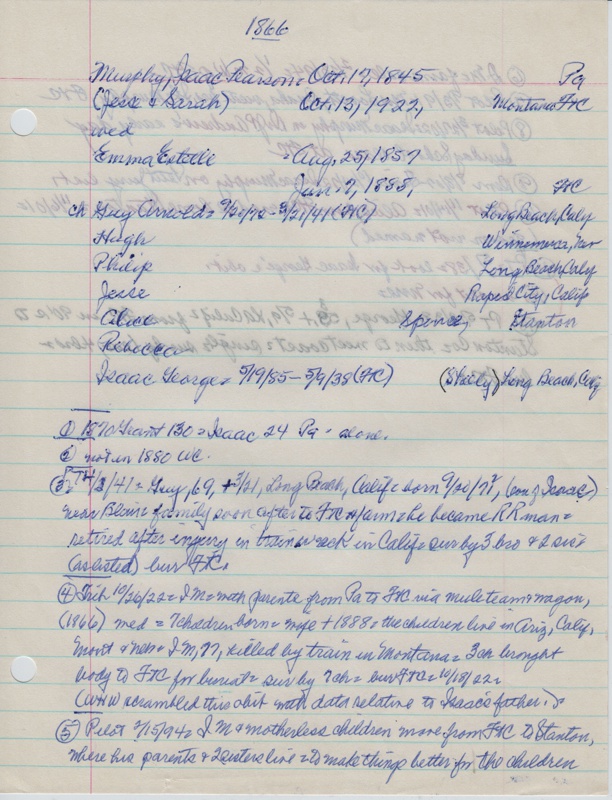 1866
Murphy, Isaac Pearson = Oct. 17, 1845 Pa
(Jesse & Sarah) Oct. 13, 1922, Montana FtC
wed
Emma Estelle = Aug, 25, 1857
Jan. 7, 1888, FtC
ch Guy Arnold = 9/20/72 - 3/21/41 (FtC) Long Beach, Calif
Hugh Winnemucca, Nev
Philip Long Beach, Calif
Jesse Rapes City, Calif
Alice Spence, Stanton
Rebecca
Isaac George = 5/19/85 - 5/9/38 (FtC) Long Beach, Calif
① 1870 Grant 130 = Isaac 24 Pa = alone.
② not in 1880 WC.
③ 4/3/41 = Guy, 69, + 3/21, Long Beach, Calif = born 9/20/72, (son of Isaac)
near Blair = family soon after to FtC farm = he became RR man =
retired after injury in train wreck in Calif = sur by 3 bro & 2 sis
(as listed) bur FtC.
④ Trib 10/26/22 = I M = with parents from Pa to FtC via mule team & wagon,
(1866) wed = 7 children born = wife + 1888 = the children live in Ariz, Calif,
Mont & Neb = I M, 77, killed by train in Montana = 3 ch brought
body to FtC for burial = sur by 7 ch = bur FtC = 10/18/22.
(WHW scrambled this obit with data relative to Isaac's father.)
⑤ Pilot 2/15/94 = I M & motherless children move from FtC to Stanton,
where his parents & 2 sisters live = to make things better for the children